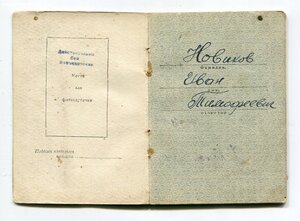 Действительно
без
фотокарточки
Место
для
фотокарточки
Новиков
фамилия
Иван
имя
Тимофеевич
отчество